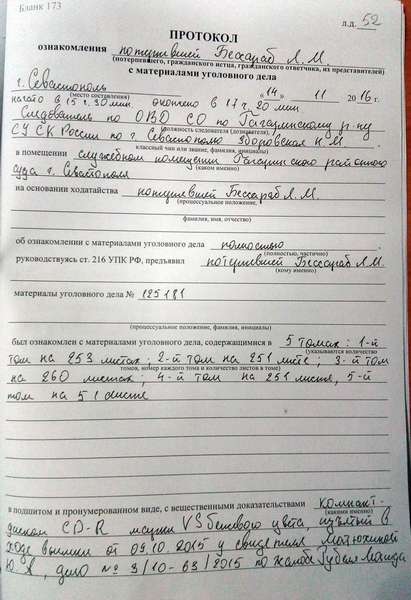 Бланк 173
л.д. 52
ПРОТОКОЛ
ознакомления потерпевшей Бессараб Л.М.
(потерпевшего, гражданского истца, гражданского ответчика, их представителей)
с материалами уголовного дела
г. Севастополь «14» 11 2016 г.
(место составления)
начато в 15 ч. 30 мин окончено в 17 ч. 20 мин
Следователь по ОВД СО по Гагаринскому р-ну
(должность следователя (дознавателя),
СУ СК России по г. Севастополю Зборовская Н.М.
классный чин или звание, фамилия, инициалы)
в помещении служебном помещении Гагаринского районного
(каком именно)
суда г. Севастополя
на основании ходатайства потерпевшей Бессараб Л.М.
(процессуальное положение,
фамилия, имя, отчество)
об ознакомлении с материалами уголовного дела полностью
(полностью, частично)
руководствуясь ст. 216 УПК РФ, предъявил потерпевшей Бессараб Л.М.
(кому именно)
материалы уголовного дела № 125181
(процессуальное положение, фамилия, инициалы)
был ознакомлен с материалами уголовного дела, содержащимися в 5 томах: 1-й
(указываются количество
том на 253 листах; 2-й том на 251 листе; 3-й том
томов, номер каждого тома и количество листов в томе)
на 260 листах; 4-й том на 251 листе, 5-й
том на 51 листе
в подшитом и пронумерованном виде, с вещественными доказательствами компакт-
(какими именно)
диском CD-R VS бежевого цвета, изъятый в
ходе выемки от 09.10.2015 у свидетеля Матюхиной
Ю. А, дело № 3/10-63/2015 по жалобе